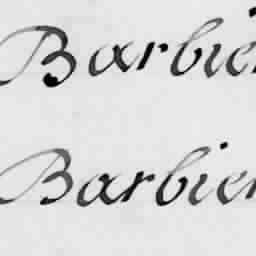 Barbier
Barbier